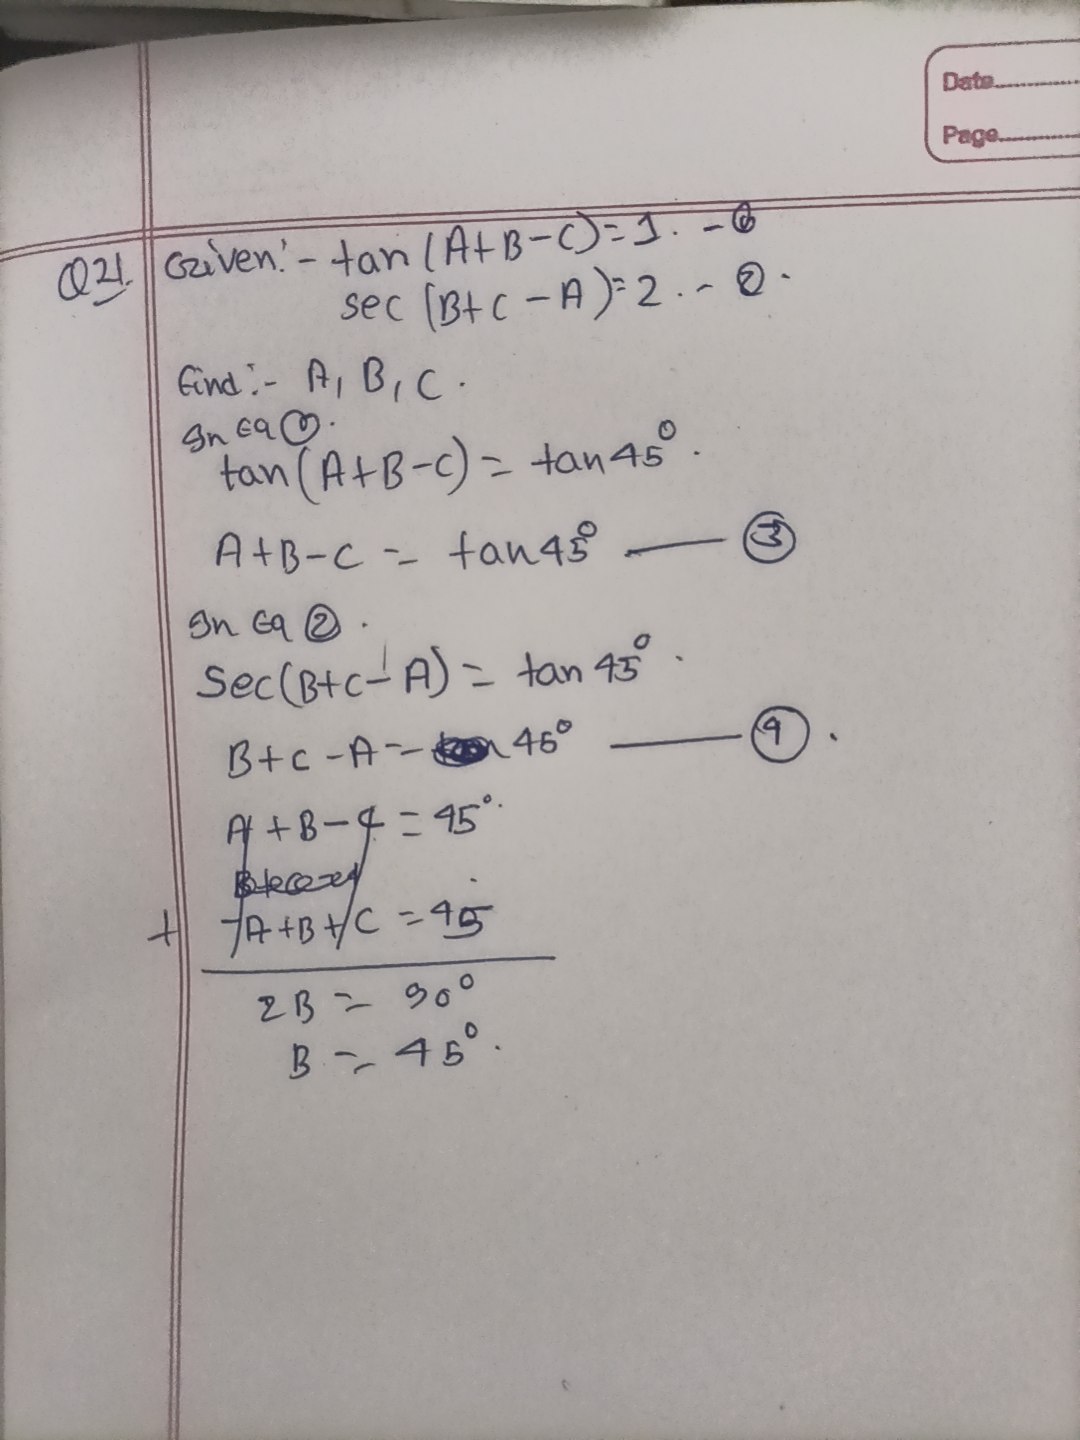 Date
Page
Q21. Given:- tan (A+B-C)=1. - ①
sec (B+C-A)=2. - ②.
find:- A, B, C.
In Eq ①.
tan (A+B-C) = tan 45°.
A+B-C = tan 45° — ③
In Eq ②.
Sec(B+C-A) = tan 45°.
B+C-A = 45° — ④.
A+B-C = 45°.
+ -A+B+C = 45
2B = 90°
B = 45°.